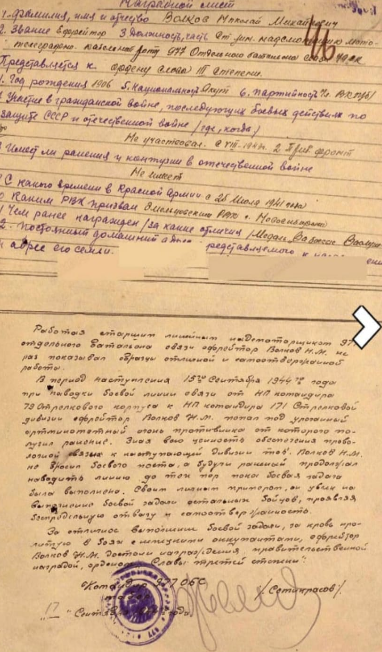 Наградной лист
1. Фамилия, имя и отчество Волков Николай Михайлович
2. Звание ефрейтор 3. Должность, часть Ст. лин. надсмотрщик
977 Отдельного
Представляется к ордену Слава III степени.
4. Год рождения 1906 5. Национальность 6. Партийность
7. Участие в гражданской войне, последующих боевых действиях по
защите СССР и отечественной войне /где, когда/
Не участвовал. 2 Приб. фронт
8. Имеет ли ранения и контузии в отечественной войне
Не имеет
9. С какого времени в Красной Армии с 25 Июля 1941 года
10. Каким РВК призван РВК г.
11. Чем ранее награжден /за какие отличия/ Медаль
12. Постоянный домашний представляемого к
и адрес его семьи.
Работая старшим линейным надсмотрщиком 97
отдельного батальона связи ефрейтор Волков Н.М. не
раз показывал образцы отличной и самоотверженной
работы.
В период наступления 15го Сентября 1944го года
при наводки боевой линии связи от НП командира
79 Стрелкового корпуса к НП командира 171 Стрелковой
дивизии ефрейтор Волков Н.М. попал под ураганный
артминометный огонь противника от которого по-
лучил ранение. Зная всю ценность обеспечения прово-
лочной связью к наступающей дивизии тов. Волков Н.М.
не бросил боевого поста, а будучи раненый продолжал
наводить линию до тех пор пока боевая задача
была выполнена. Своим личным примером он увлек на
выполнение боевой задачи остальных бойцов, проявляя
беспредельную отвагу и самоотверженность.
За отличное выполнение боевой задачи, за кровь про-
литую в боях с немецкими оккупантами, ефрейтор
Волков Н.М. достоин награждения правительственной
наградой, орденом „Славы третей степени"
Командир 977 ОБС
"17" Сентября